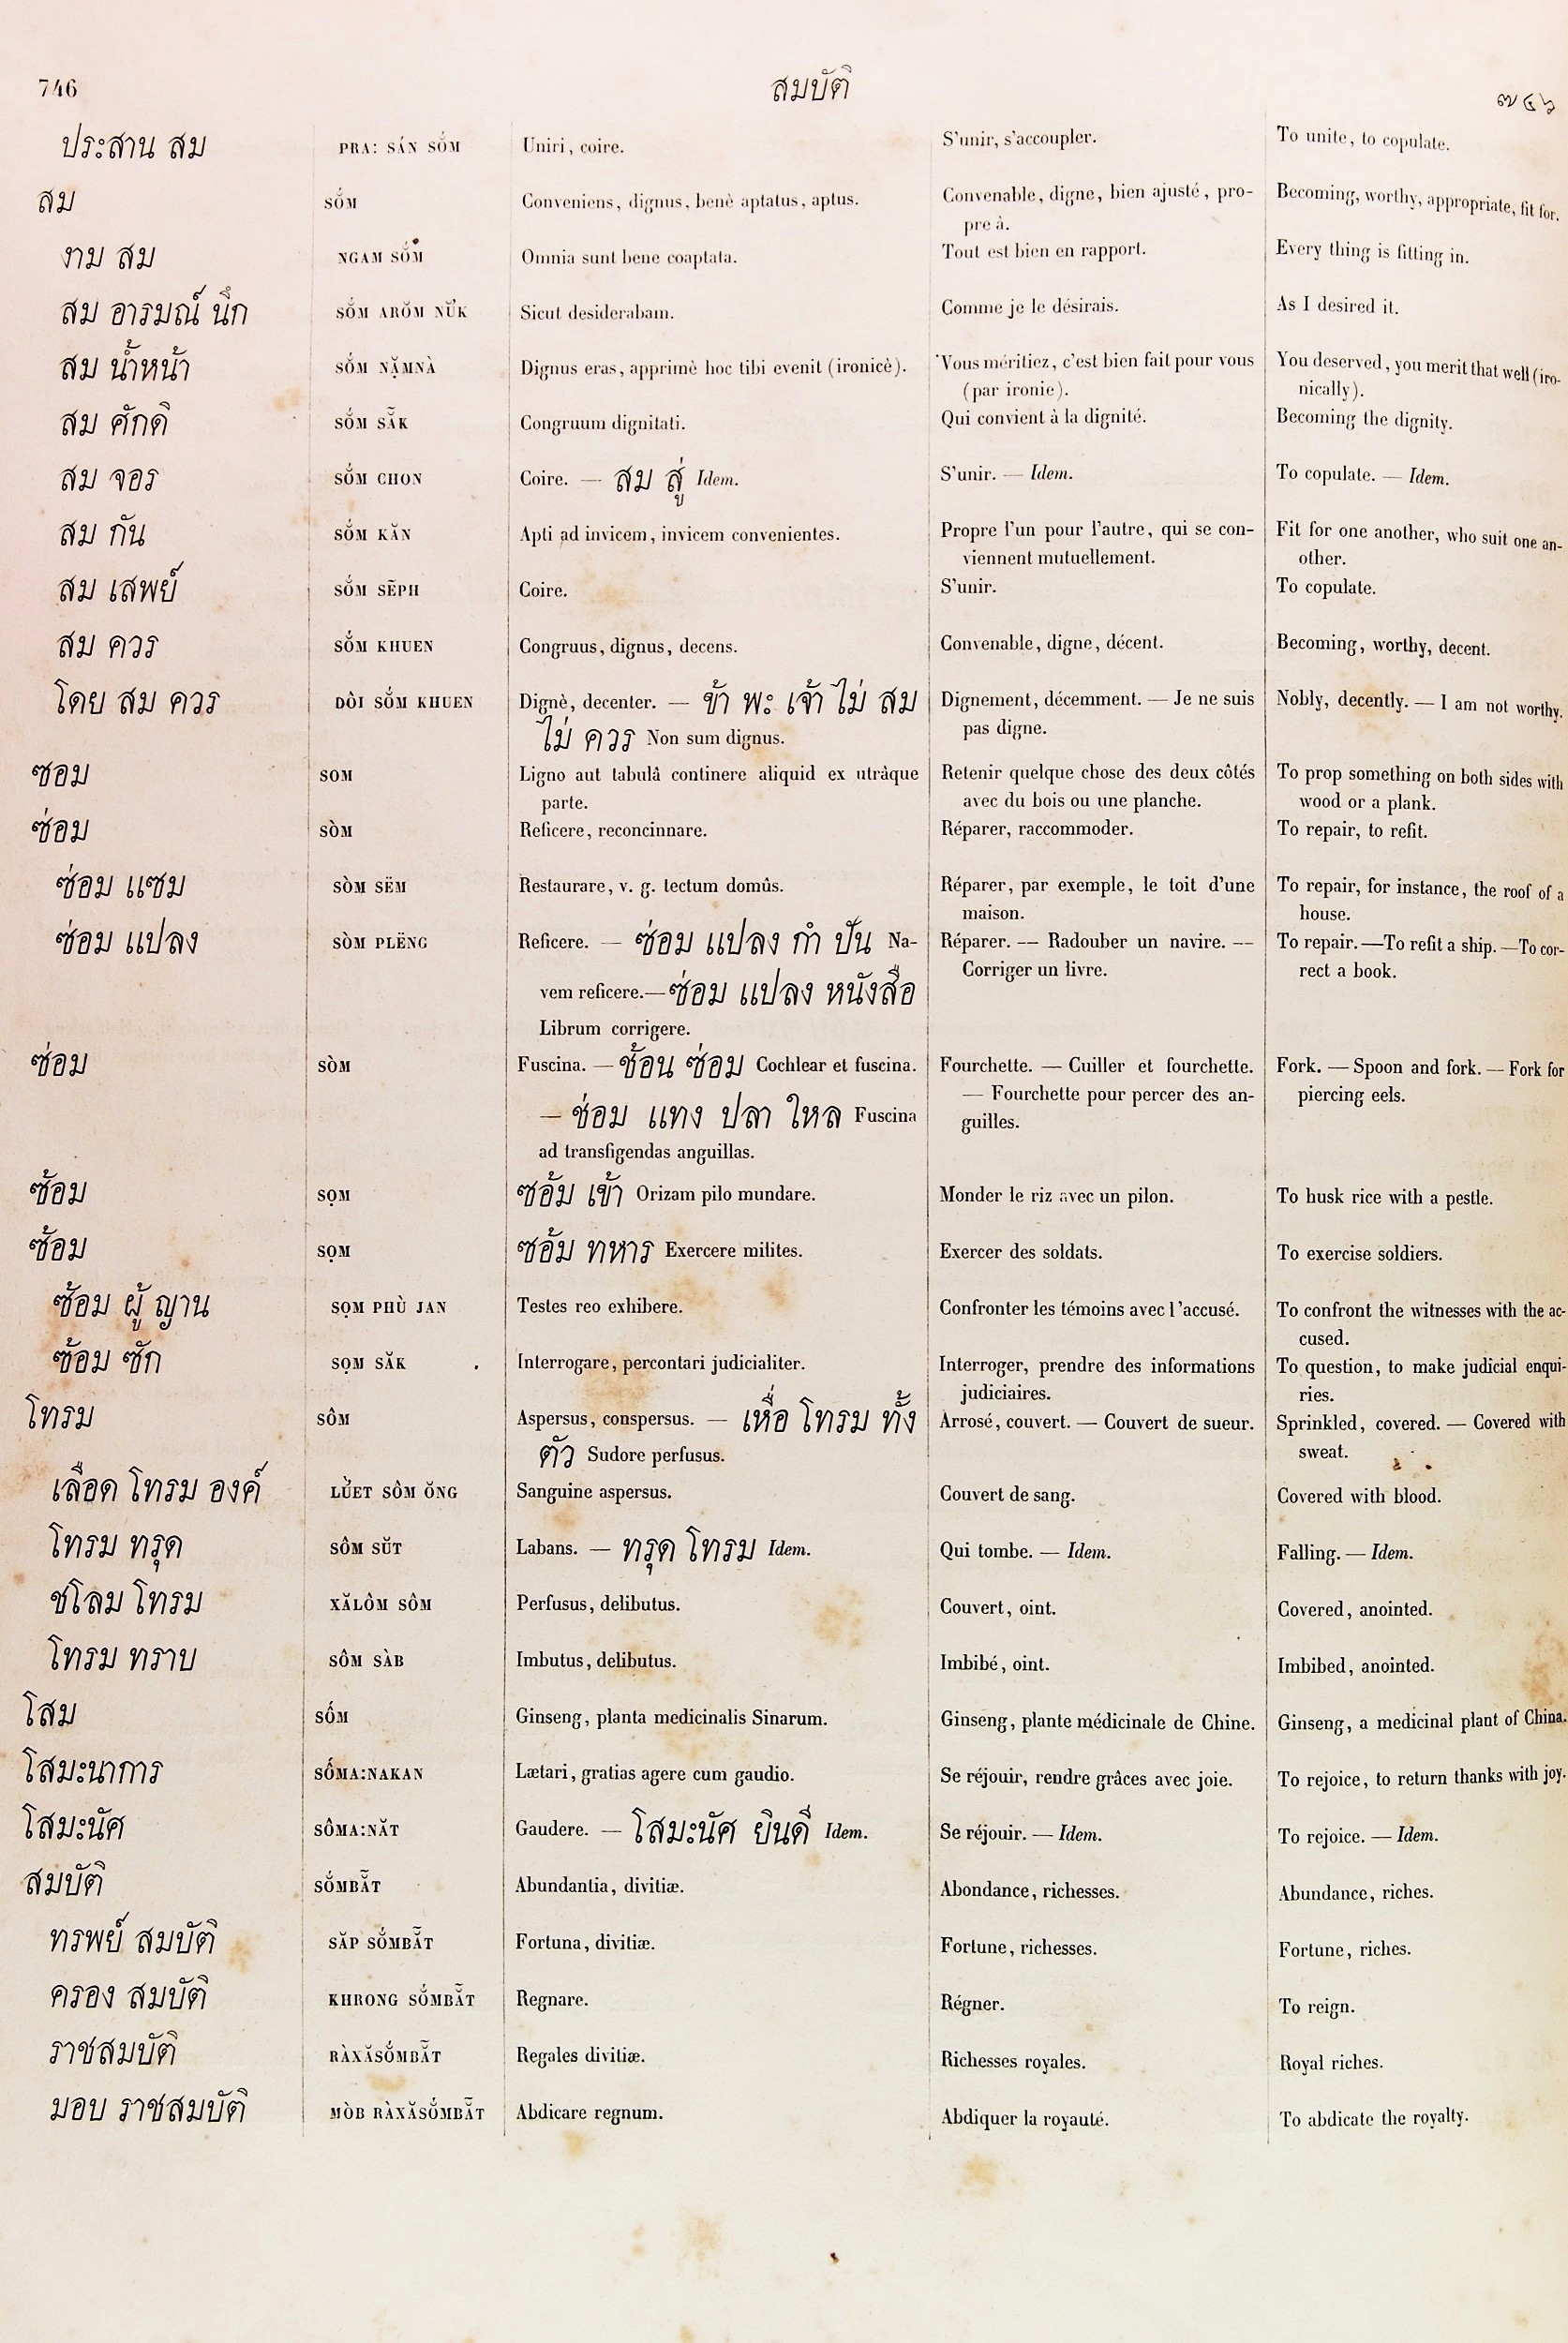 746 สมบัติ ๗๔๖
ประสาน สม PRA: SÁN SǑM Uniri, coire. S'unir, s'accoupler. To unite, to copulate.
สม SǑM Conveniens, dignus, benè aptatus, aptus. Convenable, digne, bien ajusté, pro- Becoming, worthy, appropriate, fit for.
pre à.
งาม สม NGAM SǑM Omnia sunt bene coaptata. Tout est bien en rapport. Every thing is fitting in.
สม อารมณ์ นึก SǑM ARŎM NŬ'K Sicut desiderabam. Comme je le désirais. As I desired it.
สม น้ำหน้า SǑM NẶMNÀ Dignus eras, apprimè hoc tibi evenit (ironicè). Vous méritiez, c'est bien fait pour vous You deserved, you merit that well (iro-
(par ironie). nically).
สม ศักดิ SǑM SĂK Congruum dignitati. Qui convient à la dignité. Becoming the dignity.
สม จอร SǑM CHON Coire. — สม สู่ Idem. S'unir. — Idem. To copulate. — Idem.
สม กัน SǑM KĂN Apti ad invicem, invicem convenientes. Propre l'un pour l'autre, qui se con- Fit for one another, who suit one an-
viennent mutuellement. other.
สม เสพย์ SǑM SĒPH Coire. S'unir. To copulate.
สม ควร SǑM KHUEN Congruus, dignus, decens. Convenable, digne, décent. Becoming, worthy, decent.
โดย สม ควร DÔI SǑM KHUEN Dignè, decenter. — ข้า พะ เจ้า ไม่ สม Dignement, décemment. — Je ne suis Nobly, decently. — I am not worthy.
ไม่ ควร Non sum dignus. pas digne.
ซอม SOM Ligno aut tabulâ continere aliquid ex utràque Retenir quelque chose des deux côtés To prop something on both sides with
parte. avec du bois ou une planche. wood or a plank.
ซ่อม SÒM Reficere, reconcinnare. Réparer, raccommoder. To repair, to refit.
ซ่อม แซม SÒM SËM Restaurare, v. g. tectum domûs. Réparer, par exemple, le toit d'une To repair, for instance, the roof of a
maison. house.
ซ่อม แปลง SÒM PLËNG Reficere. — ซ่อม แปลง กำ ปั่น Na- Réparer. — Radouber un navire. — To repair.—To refit a ship. —To cor-
vem reficere.—ซ่อม แปลง หนังสือ Corriger un livre. rect a book.
Librum corrigere.
ซ่อม SÒM Fuscina. — ช้อน ซ่อม Cochlear et fuscina. Fourchette. — Cuiller et fourchette. Fork. — Spoon and fork. — Fork for
— ช่อม แทง ปลา ใหล Fuscina — Fourchette pour percer des an- piercing eels.
ad transfigendas anguillas. guilles.
ซ้อม SỌM ซอ้ม เข้า Orizam pilo mundare. Monder le riz avec un pilon. To husk rice with a pestle.
ซ้อม SỌM ซอ้ม ทหาร Exercere milites. Exercer des soldats. To exercise soldiers.
ซ้อม ผู้ ญาน SỌM PHÙ JAN Testes reo exhibere. Confronter les témoins avec l'accusé. To confront the witnesses with the ac-
cused.
ซ้อม ซัก SỌM SĂK Interrogare, percontari judicialiter. Interroger, prendre des informations To question, to make judicial enqui-
judiciaires. ries.
โทรม SÔM Aspersus, conspersus. — เหื่อ โทรม ทั้ง Arrosé, couvert. — Couvert de sueur. Sprinkled, covered. — Covered with
ตัว Sudore perfusus. sweat.
เลือด โทรม องค์ LU'ET SÔM ŎNG Sanguine aspersus. Couvert de sang. Covered with blood.
โทรม ทรุด SÔM SŬT Labans. — ทรุด โทรม Idem. Qui tombe. — Idem. Falling. — Idem.
ชโลม โทรม XĂLÔM SÔM Perfusus, delibutus. Couvert, oint. Covered, anointed.
โทรม ทราบ SÔM SÀB Imbutus, delibutus. Imbibé, oint. Imbibed, anointed.
โสม SỐM Ginseng, planta medicinalis Sinarum. Ginseng, plante médicinale de Chine. Ginseng, a medicinal plant of China.
โสมะนาการ SỐMA:NAKAN Lætari, gratias agere cum gaudio. Se réjouir, rendre grâces avec joie. To rejoice, to return thanks with joy.
โสมะนัศ SÔMA:NĂT Gaudere. — โสมะนัศ ยินดี Idem. Se réjouir. — Idem. To rejoice. — Idem.
สมบัติ SǑMBĂT Abundantia, divitiæ. Abondance, richesses. Abundance, riches.
ทรพย์ สมบัติ SĂP SǑMBĂT Fortuna, divitiæ. Fortune, richesses. Fortune, riches.
ครอง สมบัติ KHRONG SǑMBĂT Regnare. Régner. To reign.
ราชสมบัติ RÀXĂSǑMBĂT Regales divitiæ. Richesses royales. Royal riches.
มอบ ราชสมบัติ MÒB RÀXĂSǑMBĂT Abdicare regnum. Abdiquer la royauté. To abdicate the royalty.